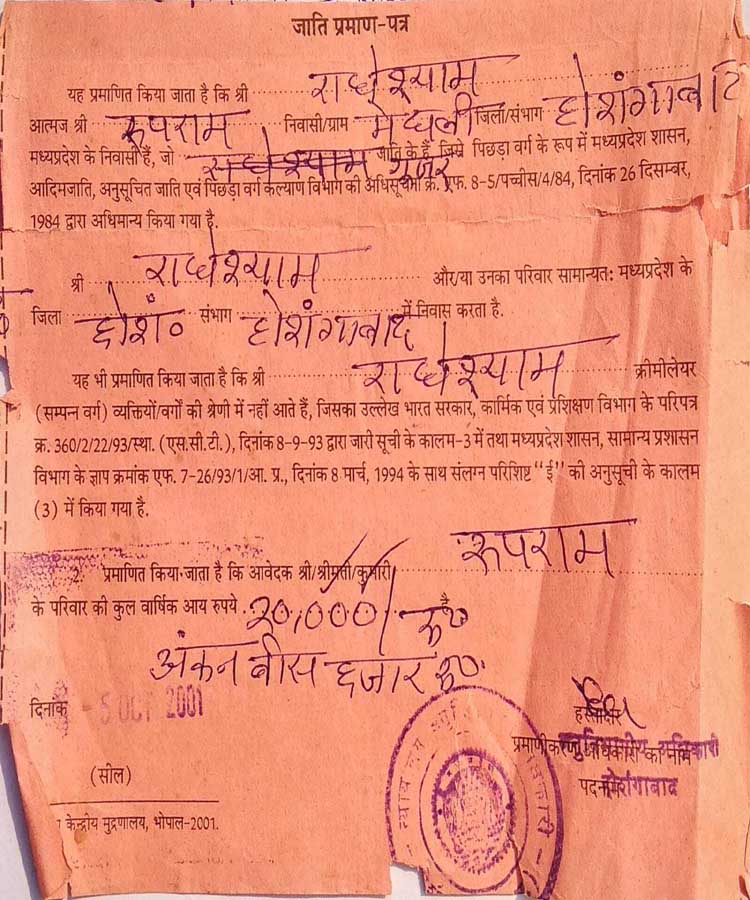 जाति प्रमाण-पत्र
यह प्रमाणित किया जाता है कि श्री राधेश्याम
आत्मज श्री रुपराम निवासी/ग्राम मेघली जिला/संभाग होशंगाबाद
मध्यप्रदेश के निवासी हैं, जो गूजर जाति के हैं, जिसे पिछड़ा वर्ग के रूप में मध्यप्रदेश शासन,
आदिमजाति, अनुसूचित जाति एवं पिछड़ा वर्ग कल्याण विभाग की अधिसूचना क्र. एफ. 8-5/पच्चीस/4/84, दिनांक 26 दिसम्बर,
1984 द्वारा अधिमान्य किया गया है.
श्री राधेश्याम और/या उनका परिवार सामान्यत: मध्यप्रदेश के
जिला होशं० संभाग होशंगाबाद में निवास करता है.
यह भी प्रमाणित किया जाता है कि श्री राधेश्याम क्रीमीलेयर
(सम्पन्न वर्ग) व्यक्तियों/वर्गों की श्रेणी में नहीं आते हैं, जिसका उल्लेख भारत सरकार, कार्मिक एवं प्रशिक्षण विभाग के परिपत्र
क्र. 360/2/22/93/स्था. (एस.सी.टी.), दिनांक 8-9-93 द्वारा जारी सूची के कालम-3 में तथा मध्यप्रदेश शासन, सामान्य प्रशासन
विभाग के ज्ञाप क्रमांक एफ. 7-26/93/1/आ. प्र., दिनांक 8 मार्च, 1994 के साथ संलग्न परिशिष्ट "ई" की अनुसूची के कालम
(3) में किया गया है.
2. प्रमाणित किया जाता है कि आवेदक श्री/श्रीमती/कुमारी रुपराम
के परिवार की कुल वार्षिक आय रुपये 20,000/ रु० है
अंकन बीस हजार रु०.
दिनांक - 5 OCT 2001
हस्ताक्षर
प्रमाणीकरण अधिकारी का नाम
(सील) पदनाम होशंगाबाद
केन्द्रीय मुद्रणालय, भोपाल-2001.